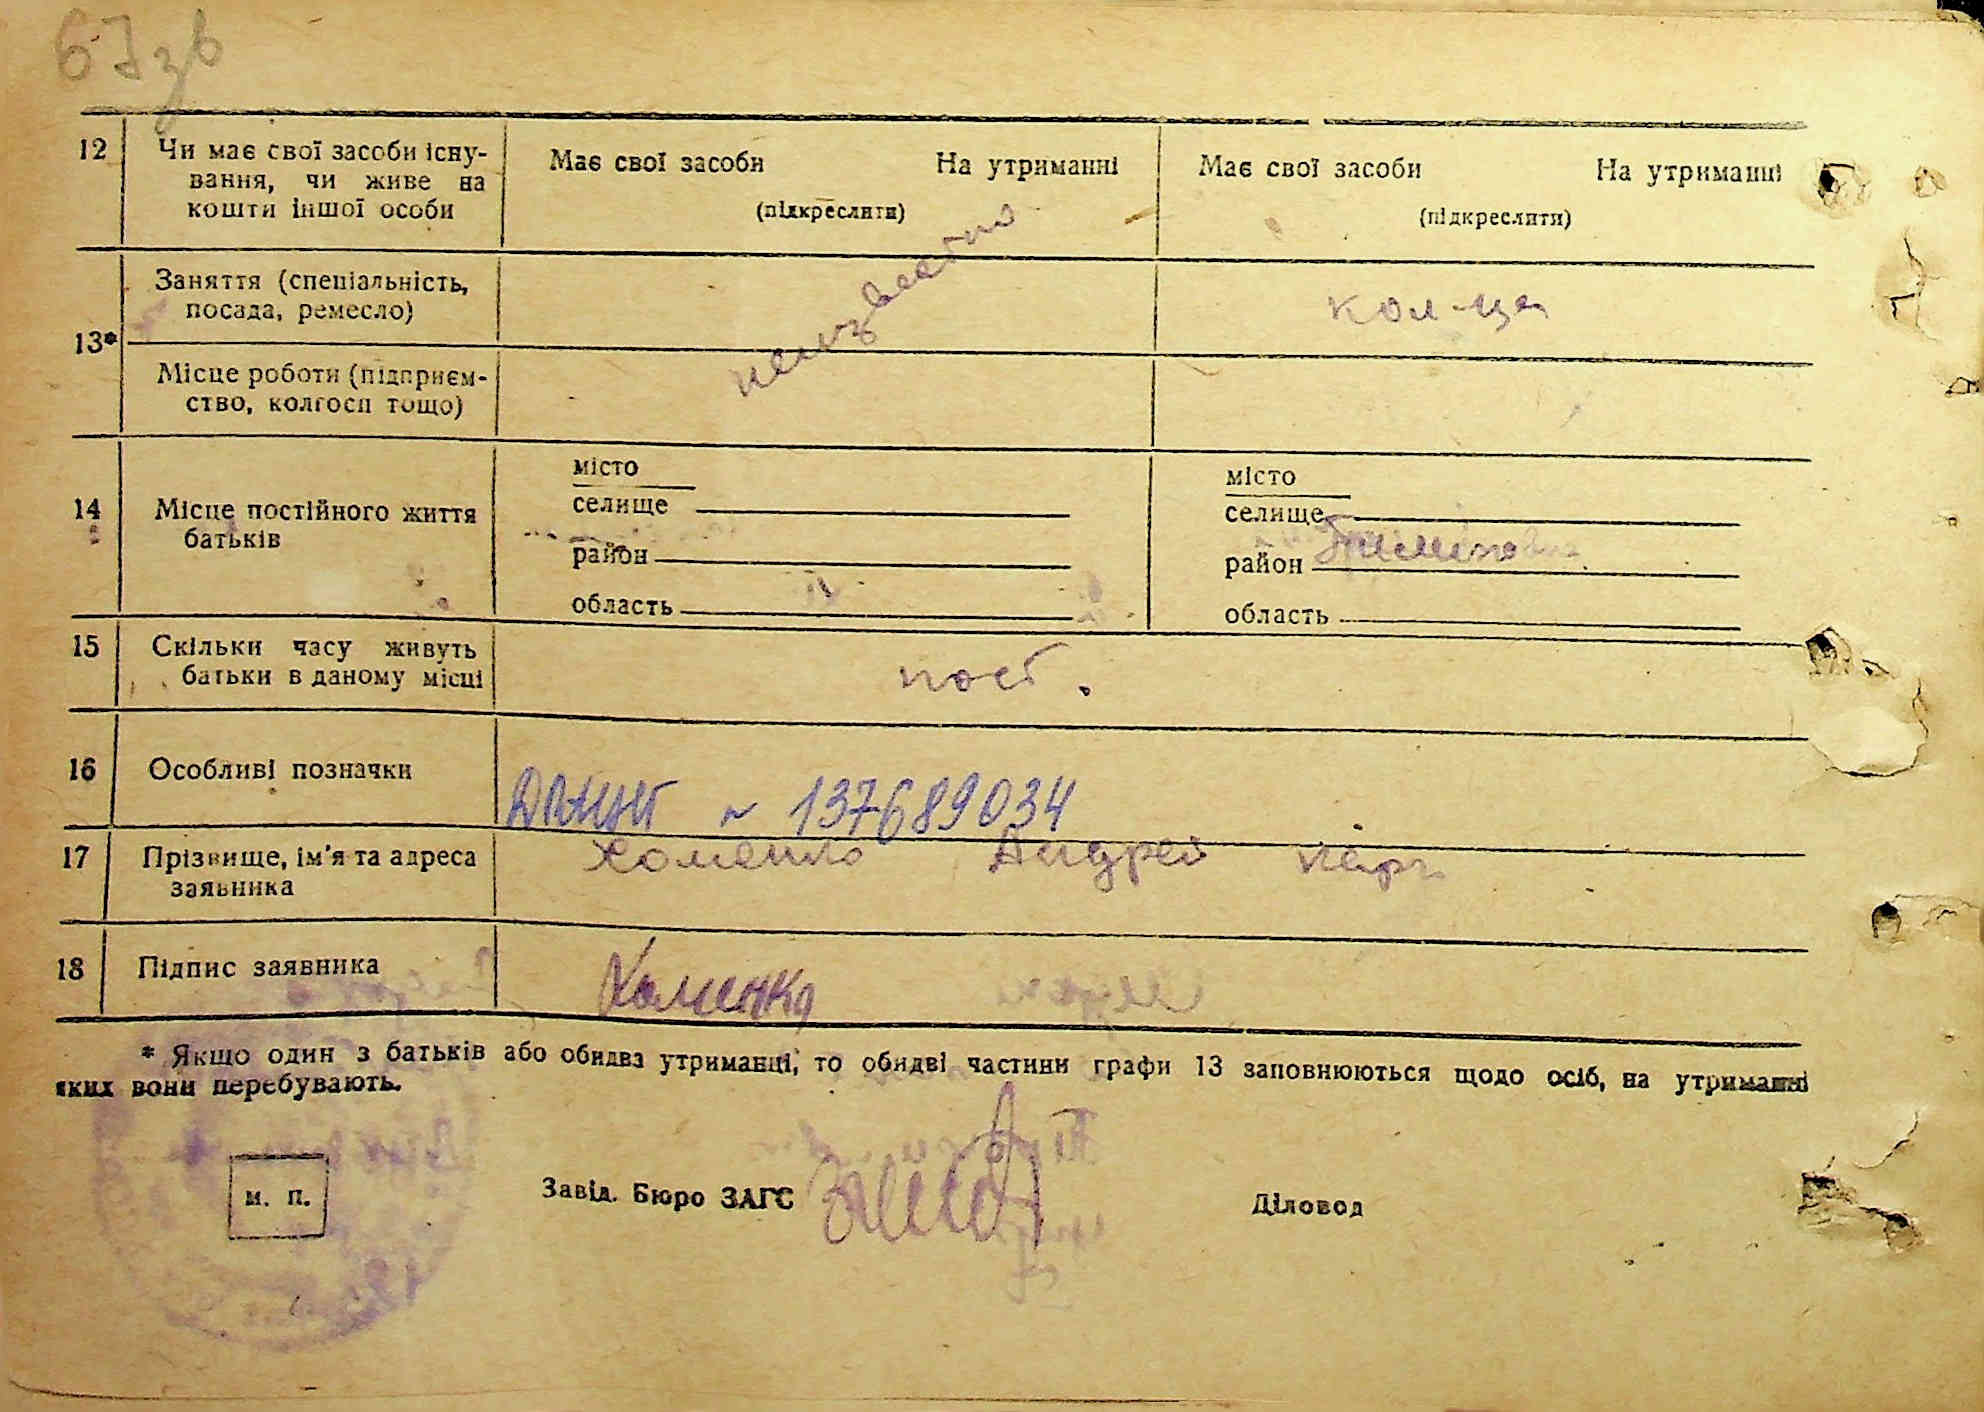 67зв
12 Чи має свої засоби існу-
вання, чи живе на
кошти іншої особи
Має свої засоби На утриманні
(підкреслити)
Має свої засоби На утриманні
(підкреслити)
неизвестно
13*
Заняття (спеціальність,
посада, ремесло)
кол-ца
Місце роботи (підприєм-
ство, колгосп тощо)
14 Місце постійного життя
батьків
місто
селище
район
область
місто
селище
район
область
15 Скільки часу живуть
батьки в даному місці
пост.
16 Особливі позначки
N 137689034
17 Прізвище, ім'я та адреса
заявника
Хоменко Андрей
18 Підпис заявника
Хоменко
* Якщо один з батьків або обидва утриманці, то обидві частини графи 13 заповнюються щодо осіб, на утриманні
яких вони перебувають.
м. п.
Завід. Бюро ЗАГС
Діловод